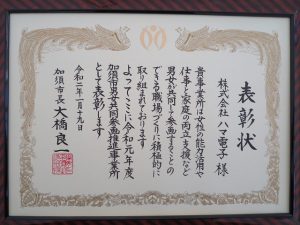 表彰状
株式会社ハマ電子 様
貴事業所は女性の能力活用や
仕事と家庭の両立支援など
男女が共同して参画することの
できる職場づくりに積極的に
取り組まれております
よってここに令和元年度
加須市男女共同参画推進事業所
として表彰します
令和二年一月十九日
加須市長 大橋良一